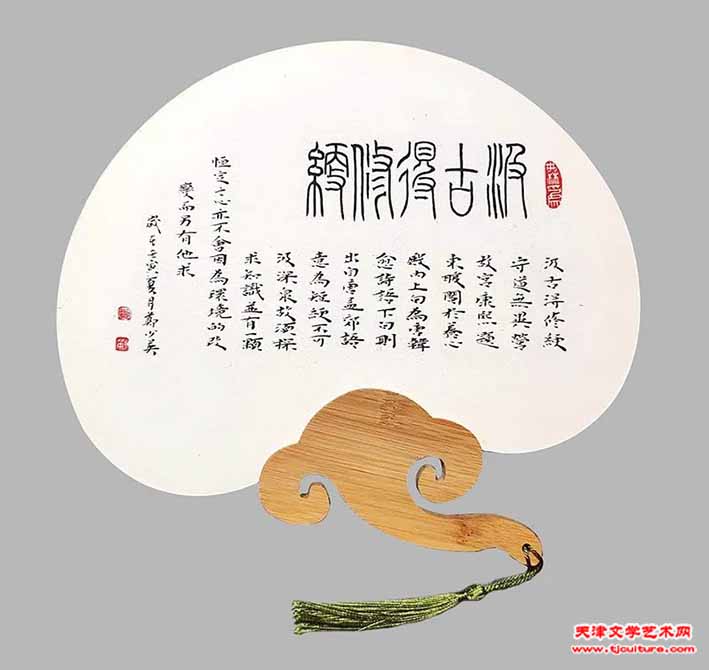 汲古得修綆
汲古得修綆
守道無異營
故宮康熙題
東暖閣於養心
殿內上句為唐韓
愈詩語下句則
出自唐孟郊語
意為短綆不可
汲深泉故須探
求知識並有一顆
恒定之心亦不會因為環境的改
變而另有他求
歲在壬寅夏月鄭少英
天津文学艺术网
www.tjculture.com